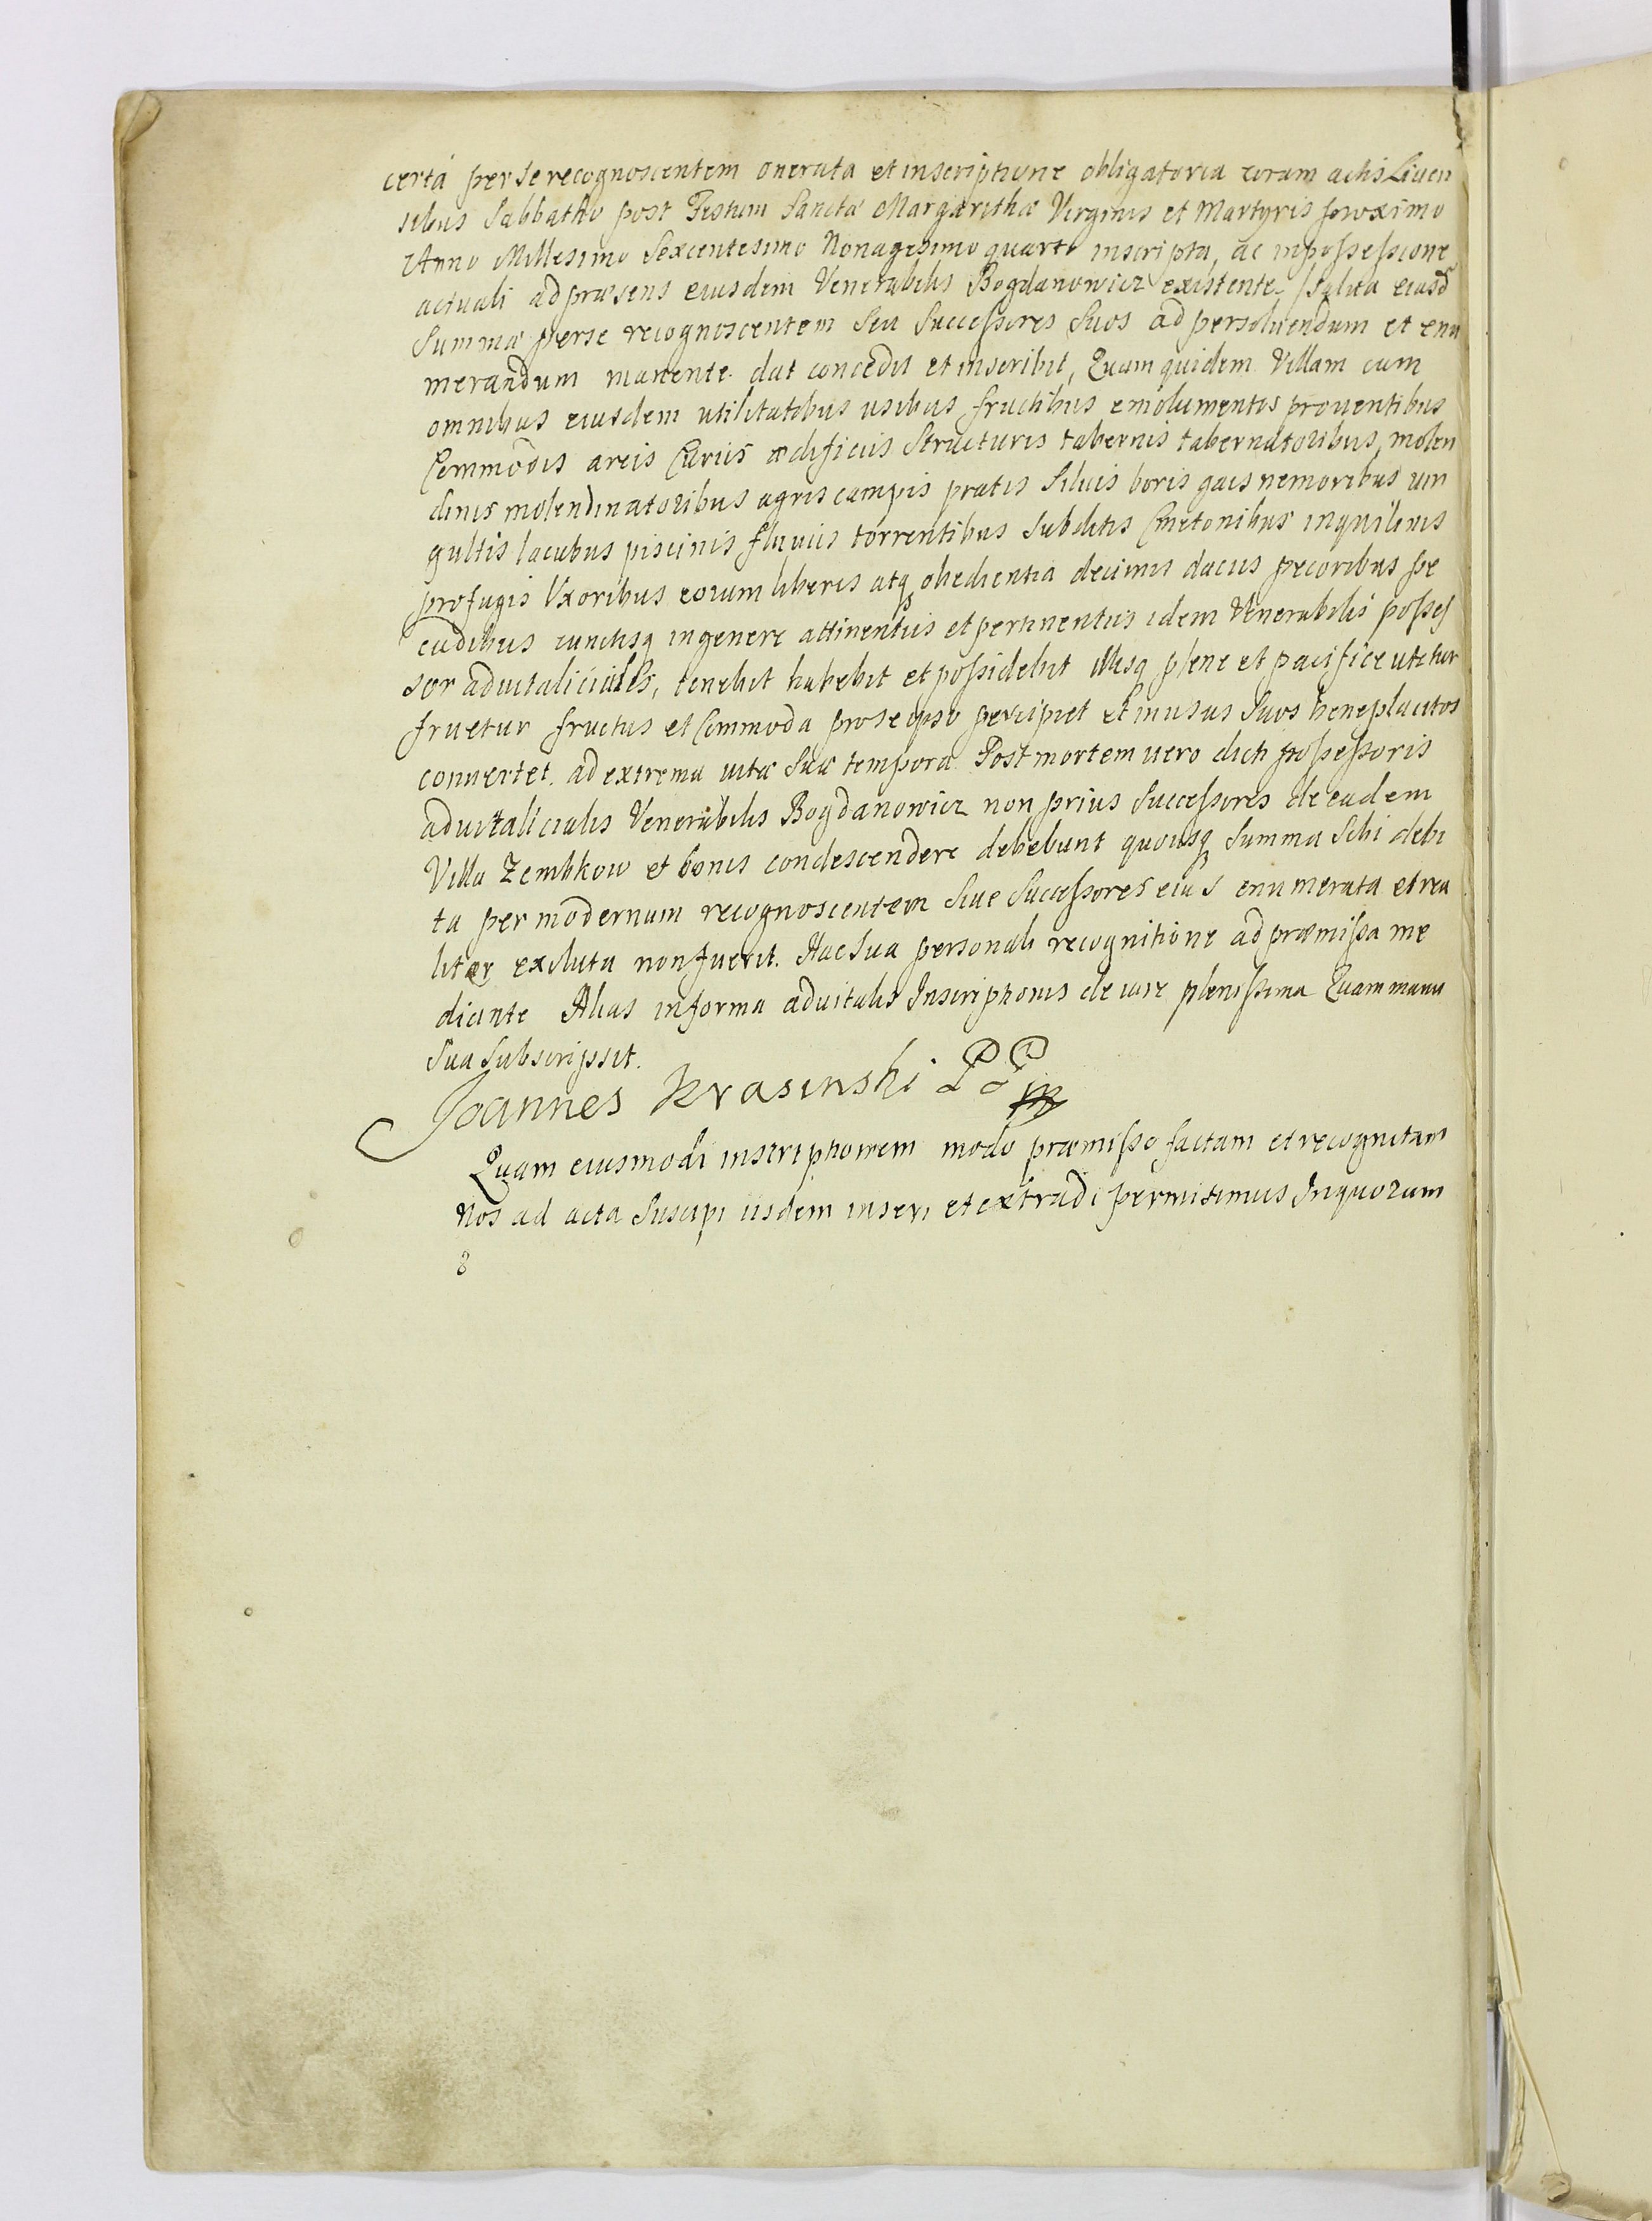 certa per se recognoscentem onerata et inscriptione obligatoria coram actis Liuen
sibus Sabbatho post Festum Sanctæ Margarithæ Virginis et Martyris proximo
Anno Millesimo Sexcentesimo Nonagesimo quarto inscripta, ac in possessione
actuali ad præsens eiusdem Venerabilis Bogdanowicz existente /salua eiusd
Summæ per se recognoscentem seu Successores Suos ad persoluendum et enu
merandum manente dat concedit et inscribit, Quam quidem Villam cum
omnibus eiusdem utilitatibus usibus fructibus emolumentis prouentibus
Commodis areis Curiis ædificiis Structuris tabernis tabernatoribus, molen
dinis molendinatoribus agris campis pratis Siluis boris gais nemoribus uir
gultis lacubus piscinis fluuiis torrentibus Subditis Cmetonibus inquilinis
profugis Uxoribus eorum liberis atq obedientia decimis daciis pecoribus pe
cudibus cunctisq in genere attinentiis et pertinentiis idem Venerabilis posses
sor aduitalicialis, tenebit habebit et possidebit illisq plene et pacifice utetur
fruetur fructus et Commoda pro se ipso percipiet et in usus Suos beneplacitos
conuertet. ad extrema uitæ Suæ tempora Post mortem uero dicti possessoris
aduitalicialis Venerabilis Bogdanowicz non prius Successores de eadem
Villa Zembkow et bonis condescendere debebunt quousq Summa Sibi debi
ta per modernum recognoscentem Siue Successores eius enumerata et rea
liter exoluta non fuerit. Hac Sua personali recognitione ad præmissa me
diante Alias in forma aduitalis Inscriptionis de iure plenissima Quam manu
Sua Subscripsit.
Joannes Krasinski
Quam eiusmodi inscriptionem modo præmisso factam et recognitam
Nos ad acta Suscipi iisdem inseri et extradi permisimus In quorum